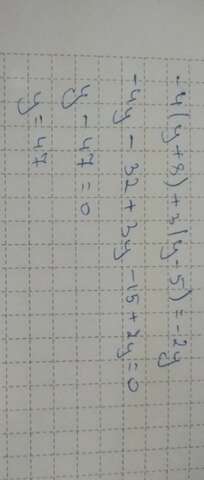 -4(y+8)+3(y-5)=-2y
-4y-32+3y-15+2y=0
y-47=0
y=47